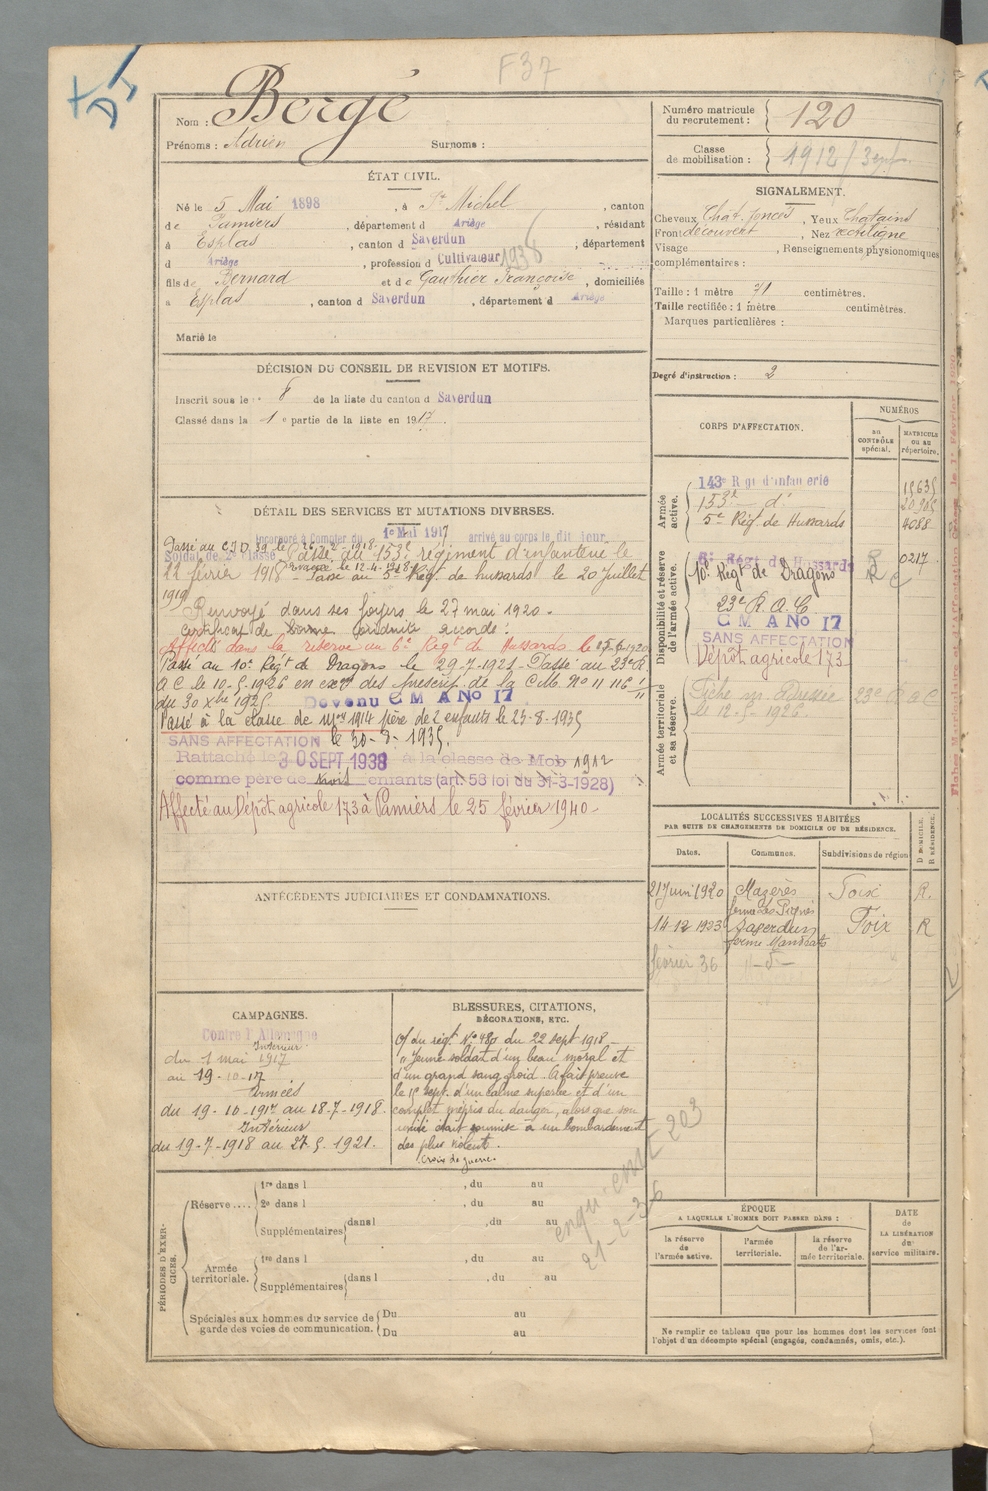 F37
Nom : Bergé
Prénoms : Adrien Surnoms :
Numéro matricule du recrutement : 120
Classe de mobilisation : 1912
ÉTAT CIVIL.
Né le 5 Mai 1898, à St Michel, canton
de Pamiers, département d Ariège, résidant
à Esplas, canton d Saverdun, département
d Ariège, profession d Cultivateur 1936
fils de Bernard et de Gauthier Françoise, domiciliés
à Esplas, canton d Saverdun, département d Ariège
Marié le
SIGNALEMENT.
Cheveux Chât. foncés, Yeux Chatains
Front découvert, Nez rectiligne
Visage , Renseignements physionomiques
complémentaires :
Taille : 1 mètre 71 centimètres.
Taille rectifiée : 1 mètre centimètres.
Marques particulières :
Degré d'instruction : 2
DÉCISION DU CONSEIL DE REVISION ET MOTIFS.
Inscrit sous le n° 8 de la liste du canton d Saverdun
Classé dans la 1e partie de la liste en 1917.
DÉTAIL DES SERVICES ET MUTATIONS DIVERSES.
Incorporé à Compter du 1e Mai 1917 arrivé au corps le dit jour
Soldat de 2e classe
Passé au C.I.D. 39 le 26-2-1918. Passé au 153e régiment d'infanterie le
12 février 1918 Passé au 5e Rég. de hussards le 20 Juillet
1919
Renvoyé dans ses foyers le 27 mai 1920.
Certificat de bonne conduite accordé.
Affecté dans la réserve au 6e Régt de Hussards le 25-6-1920
Passé au 10e Régt de Dragons le 29-7-1921 - Passé au 23e R
A C le 10-5-1926 en exon des prescript. de la C.M. No 11 116 1/11
du 30 Xbre 1925. Devenu C M A No 17
Passé à la classe de mon 1914 père de 2 enfants le 23-8-1935
SANS AFFECTATION le 30-8-1935.
Rattaché le 30 SEPT 1938 à la classe de Mob 1912
comme père de trois enfants (art. 58 loi du 31-3-1928)
Affecté au Dépôt agricole 173 à Pamiers le 25 février 1940 -
CORPS D'AFFECTATION.
NUMÉROS
au CONTRÔLE spécial.
MATRICULE ou au répertoire.
Armée active.
143e R gt d'infanterie 15635
153e d° 20905
5e Rég. de Hussards 4088
Disponibilité et réserve de l'armée active.
6e Régt de Hussards R 0217
10e Régt de Dragons R C
23e R.A.C
C M A No 17
SANS AFFECTATION
Dépôt agricole 173
Armée territoriale et sa réserve.
Fiche m. Adressée 23e R a C
le 12-5-1926.
LOCALITÉS SUCCESSIVES HABITÉES
PAR SUITE DE CHANGEMENTS DE DOMICILE OU DE RÉSIDENCE.
Dates. Communes. Subdivisions de région D DOMICILE. R RÉSIDENCE.
21 Juin 1920 Mazères Foix R.
ferme Les Pignès
14-12 1923 Saverdun Foix R
ferme
février 36 -d°-
ANTÉCÉDENTS JUDICIAIRES ET CONDAMNATIONS.
CAMPAGNES.
Contre l'Allemagne
Intérieur
du 1 mai 1917
au 19-10-17
Armées
du 19-10-1917 au 18-7-1918.
Intérieur
du 19-7-1918 au 27-5-1921.
BLESSURES, CITATIONS,
DÉCORATIONS, ETC.
O/ du régt. No 480 du 22 sept 1918 -
"Jeune soldat d'un beau moral et
d'un grand sang froid. A fait preuve
le 15 sept. d'un calme superbe et d'un
complet mépris du danger, alors que son
unité était soumise à un bombardement
des plus violent.
Croix de guerre.
21-2-36
PÉRIODES D'EXERCICES.
Réserve....
1re dans l , du au
2e dans l , du au
Supplémentaires dans l , du au
Armée territoriale.
1re dans l , du au
Supplémentaires dans l , du au
Spéciales aux hommes du service de garde des voies de communication.
Du au
Du au
ÉPOQUE
A LAQUELLE L'HOMME DOIT PASSER DANS :
la réserve de l'armée active.
l'armée territoriale.
la réserve de l'armée territoriale.
DATE de LA LIBÉRATION du service militaire.
Ne remplir ce tableau que pour les hommes dont les services font
l'objet d'un décompte spécial (engagés, condamnés, omis, etc.).